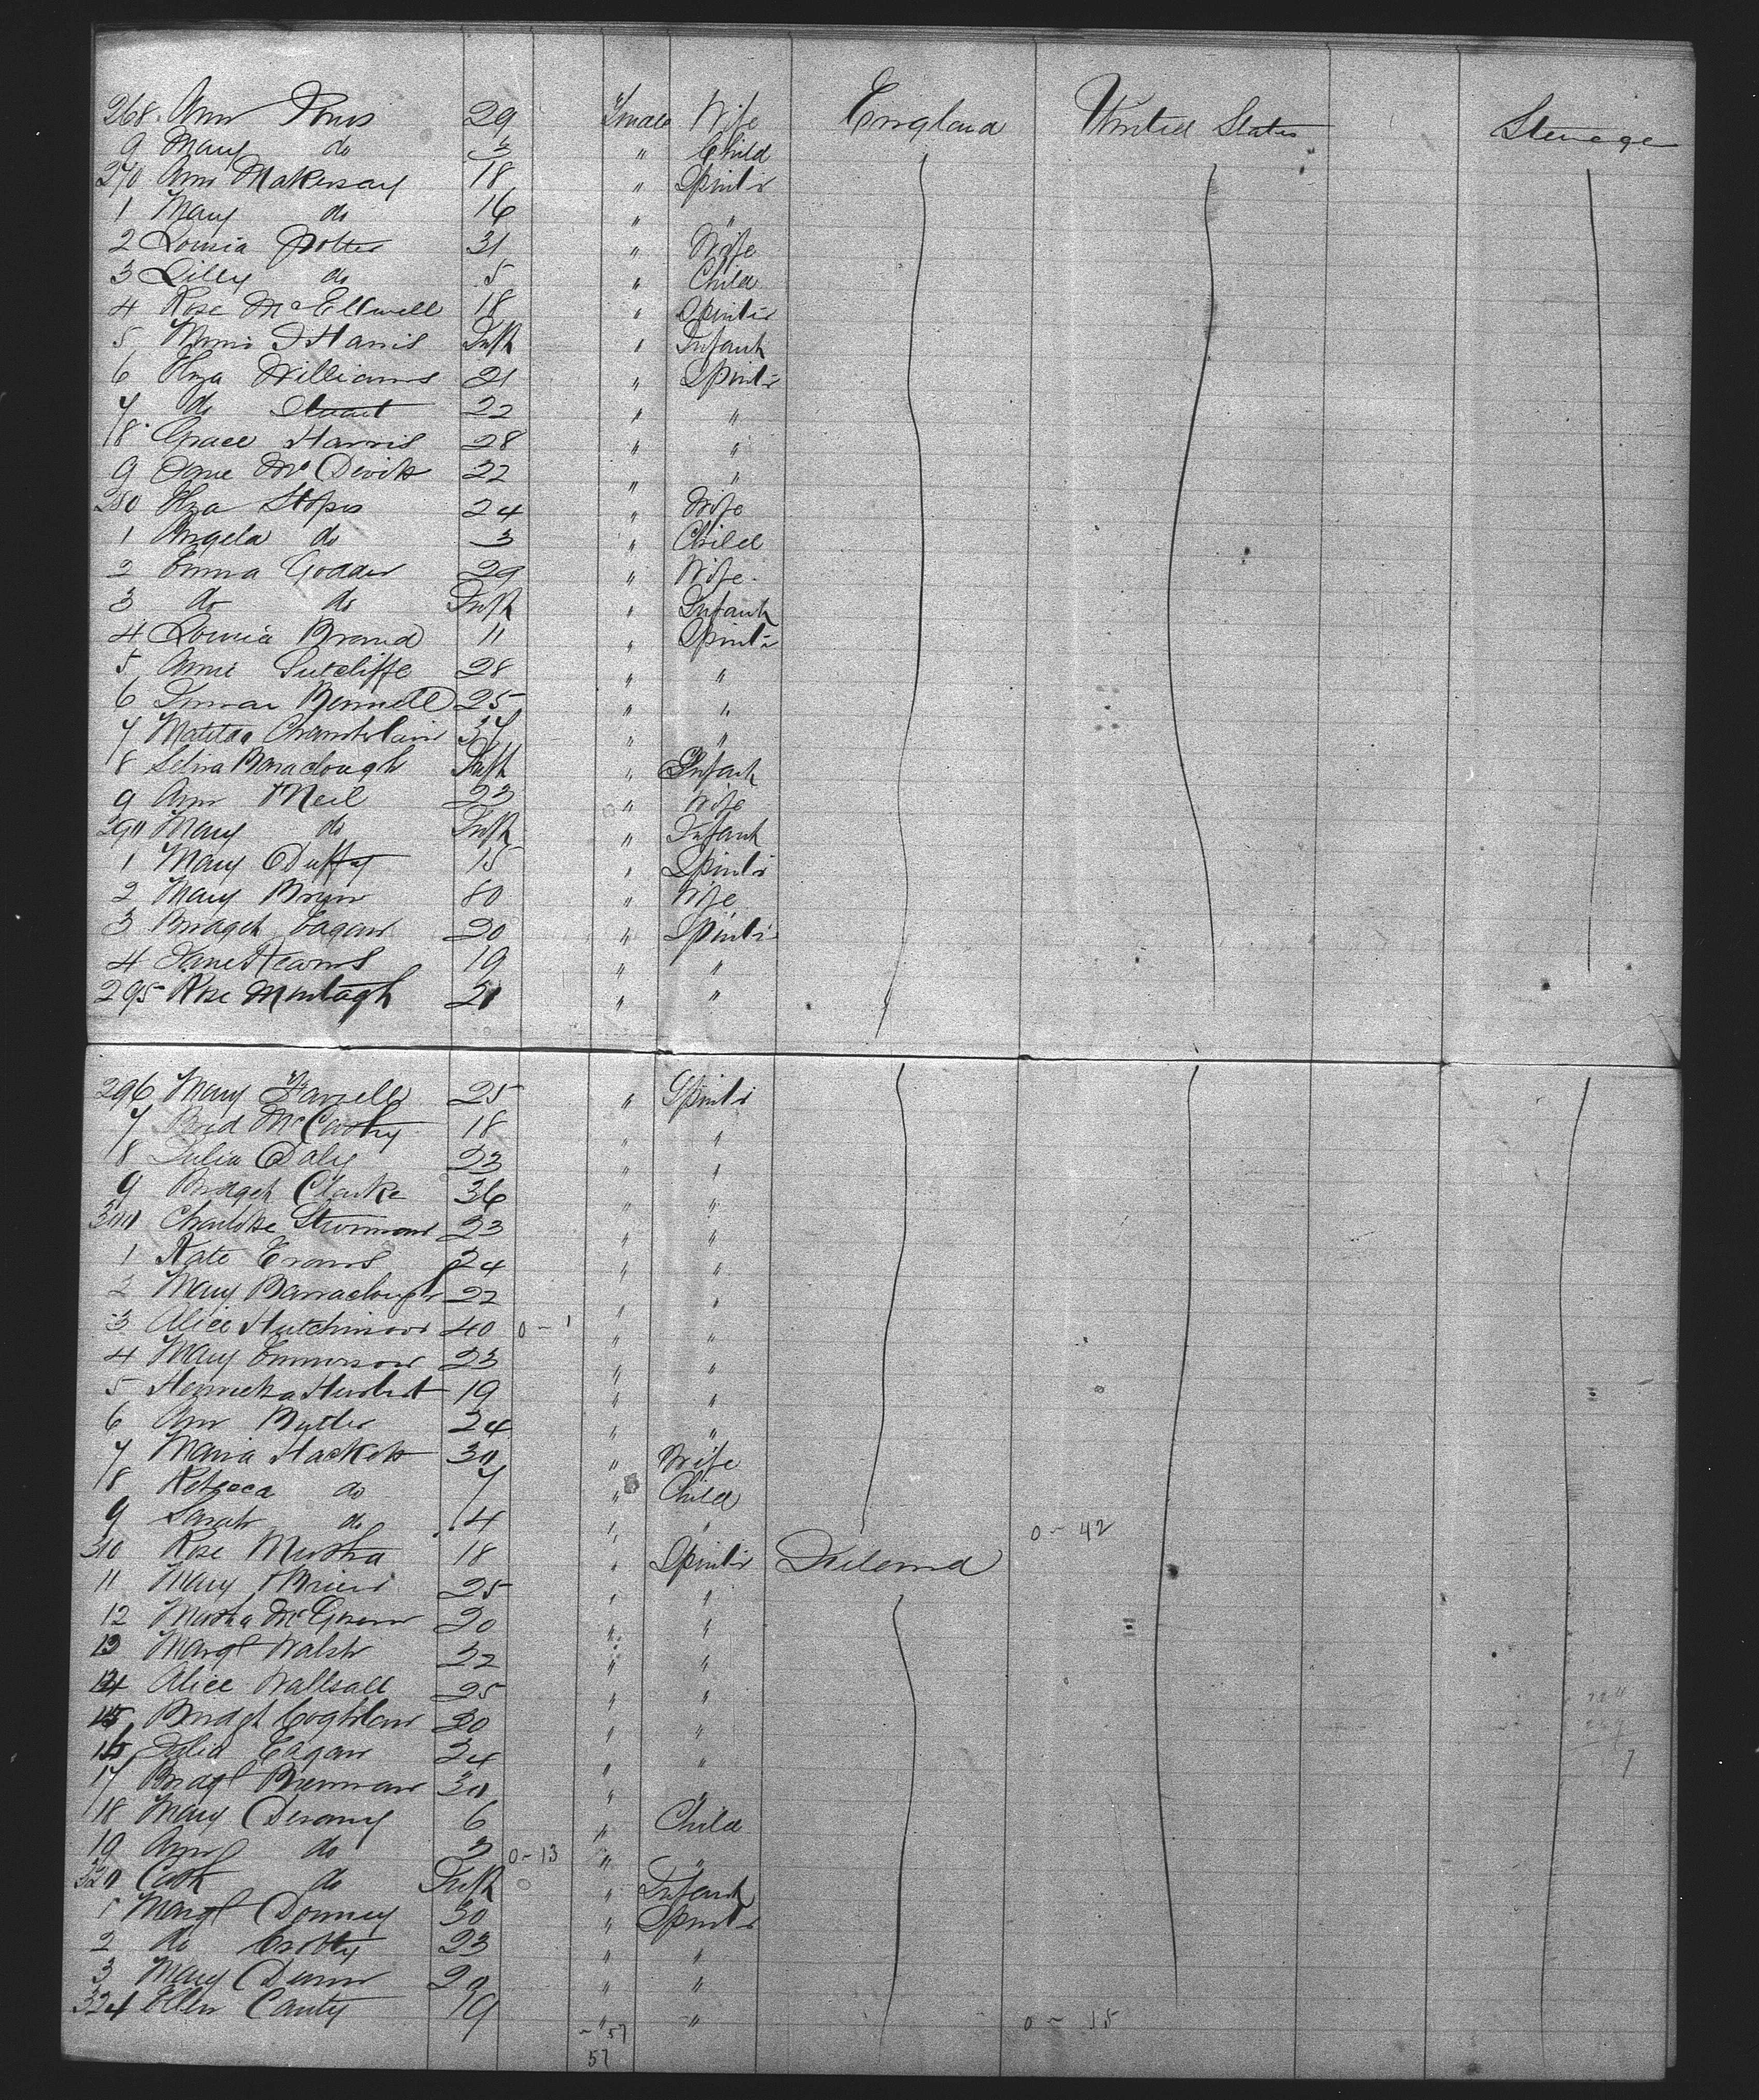 268 Ann 29 Female Wife England United States Steerage
9 Mary do 3 " Child
270 Ann Makinsay 18 " Spinstr
1 Mary do 16 " "
2 Louisa Potter 31 " Wife
3 Lilly do 5 " Child
4 Rose McEllwell 18 " Spinstr
5 Harris Inft " Infant
6 Eliza Williams 21 " Spinstr
7 do Stuart 22 " "
8 Grace Harris 28 " "
9 Jane McDevitt 22 " "
280 Eliza Stopes 24 " Wife
1 Angela do 3 " Child
2 Emma Godder 29 " Wife
3 do do Inft " Infant
4 Louisa Brand 11 " Spinstr
5 Annie Sutcliffe 28 " "
6 Bennett 25 " "
7 Matilda Chamberlain 37 " "
8 Selina Baraclough Inft " Infant
9 Ann Neil 23 " Wife
290 Mary do Inft " Infant
1 Mary Duffy 15 " Spinstr
2 Mary Bryan 80 " Wife
3 Bridget Eagan 20 " Spinstr
4 Jane Kearns 19 " "
295 Rose Murtagh 21 " "
296 Mary Farrell 25 " Spinstr
7 Brid McCarthy 18 " "
8 Julia Daly 23 " "
9 Bridget Clarke 36 " "
300 Charlotte 23 " "
1 Kate Evans 24 " "
2 Mary Barraclough 22 " "
3 Alice Hutchinson 40 0-1 " "
4 Mary Emmerson 23 " "
5 Henrietta Hurlbert 19 " "
6 Ann Butler 24 " "
7 Maria Hackett 30 " Wife
8 Rebecca do 7 " Child
9 Sarah do 4 " " 0-42
310 Rose Murtha 18 " Spinstr Ireland
11 Mary OBrien 25 " "
12 Martha 20 " "
13 Margt Walsh 22 " "
14 Alice Wallsall 25 " "
15 Bridgt Coghlan 20 " "
16 Julia Eagan 24 " "
17 Bridgt Brennan 30 " "
18 Mary Devany 6 " Child
19 Ann do 3 0-13 " "
320 Cath do Inft " Infant
1 Margt Downey 30 " Spinstr
2 do Crotty 23 " "
3 Mary Dunn 20 " "
324 Ellen Canty 19 " " 0-15
57
57